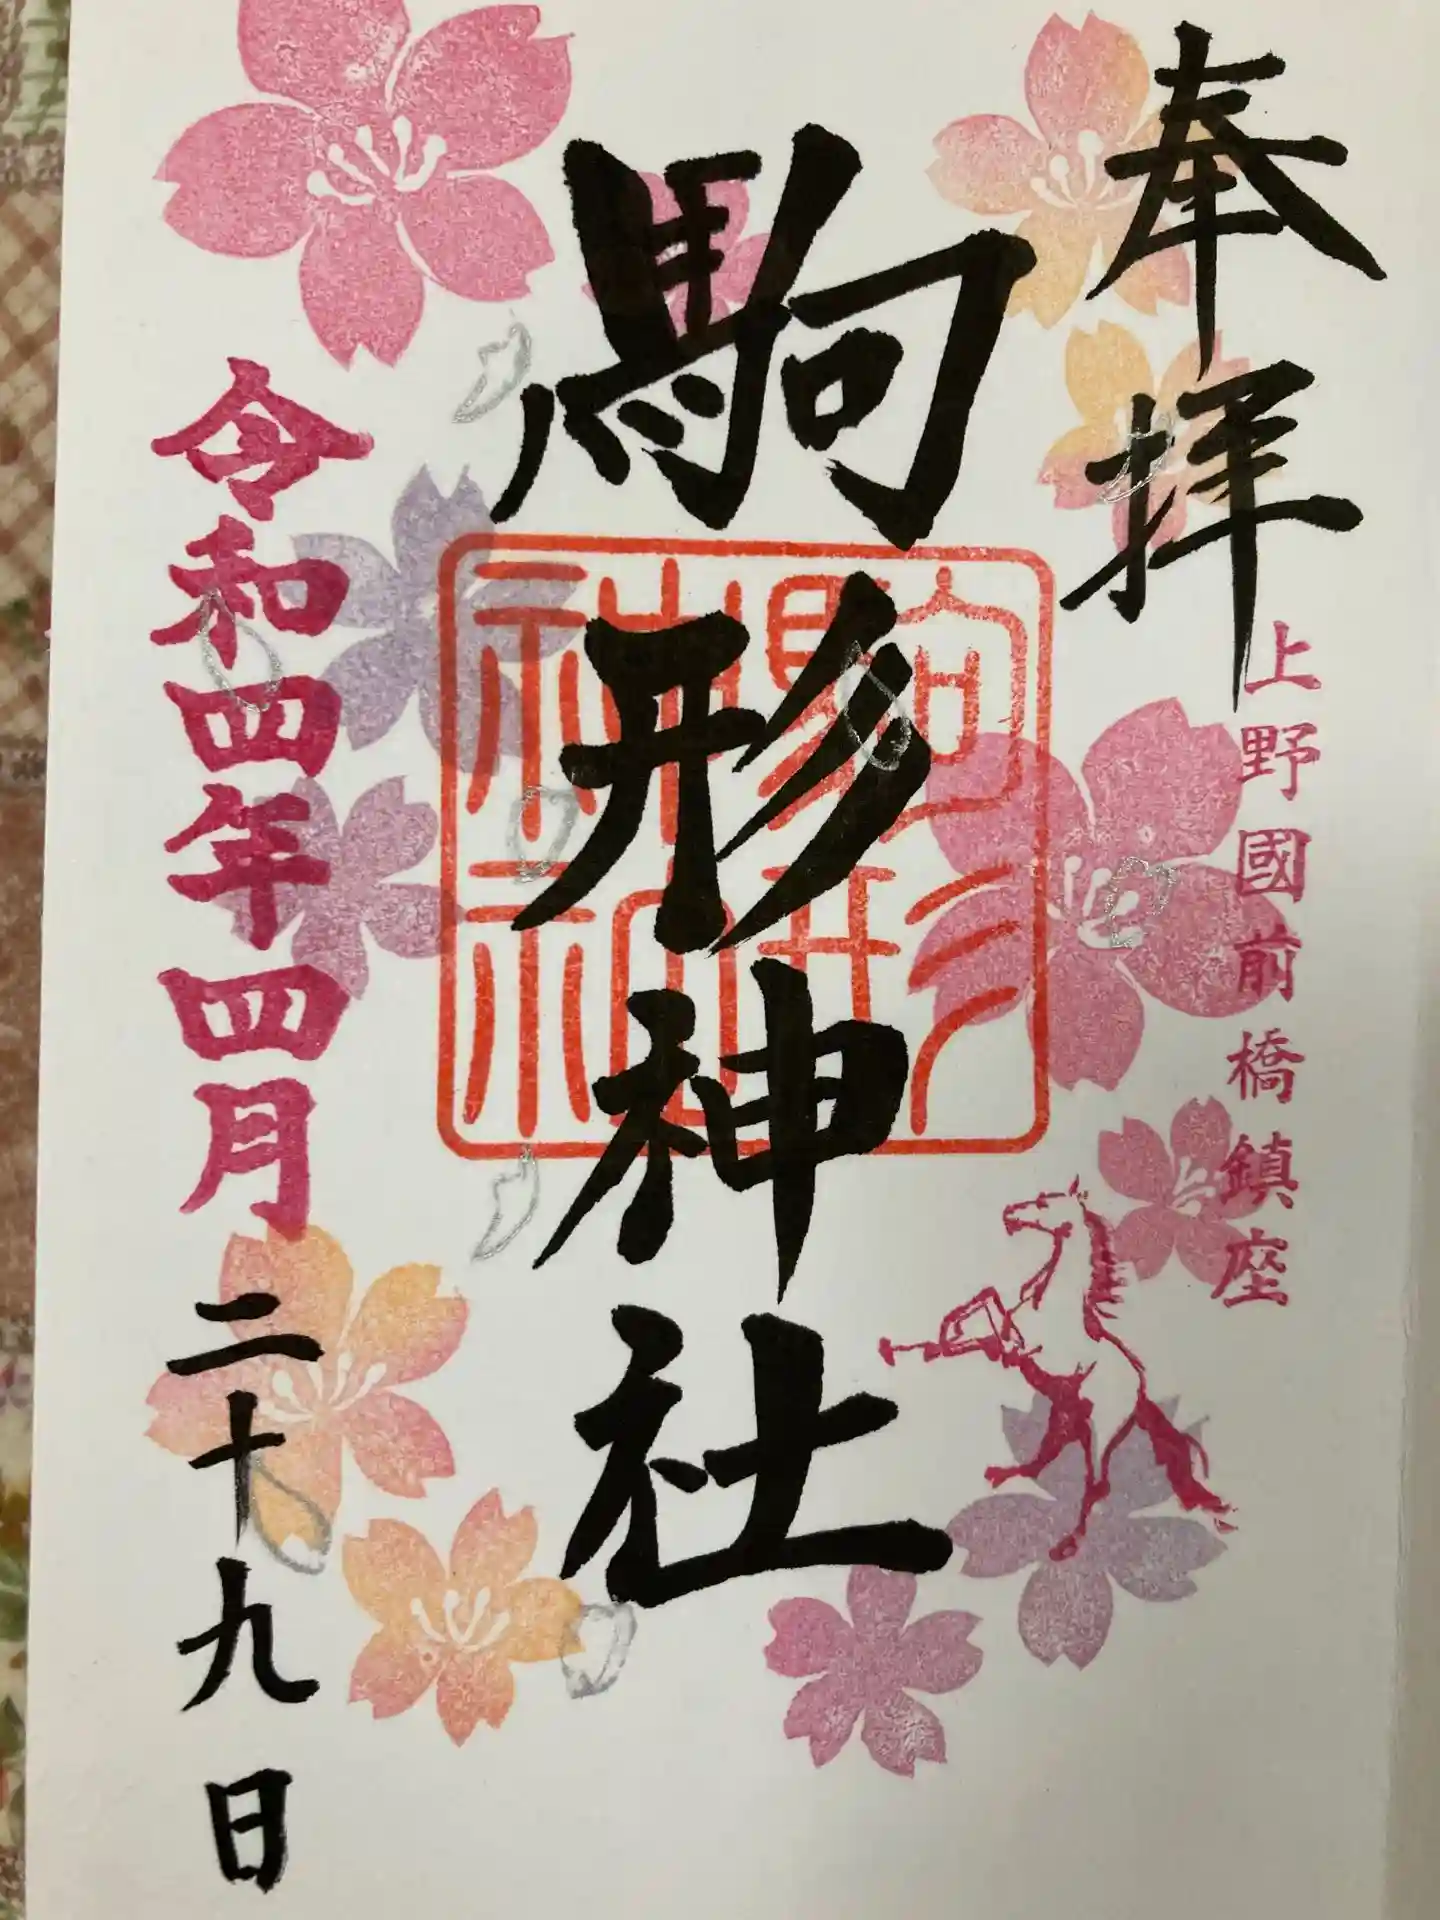 奉拝
上野國前橋鎮座
駒形神社
駒形
神社
令和四年四月二十九日